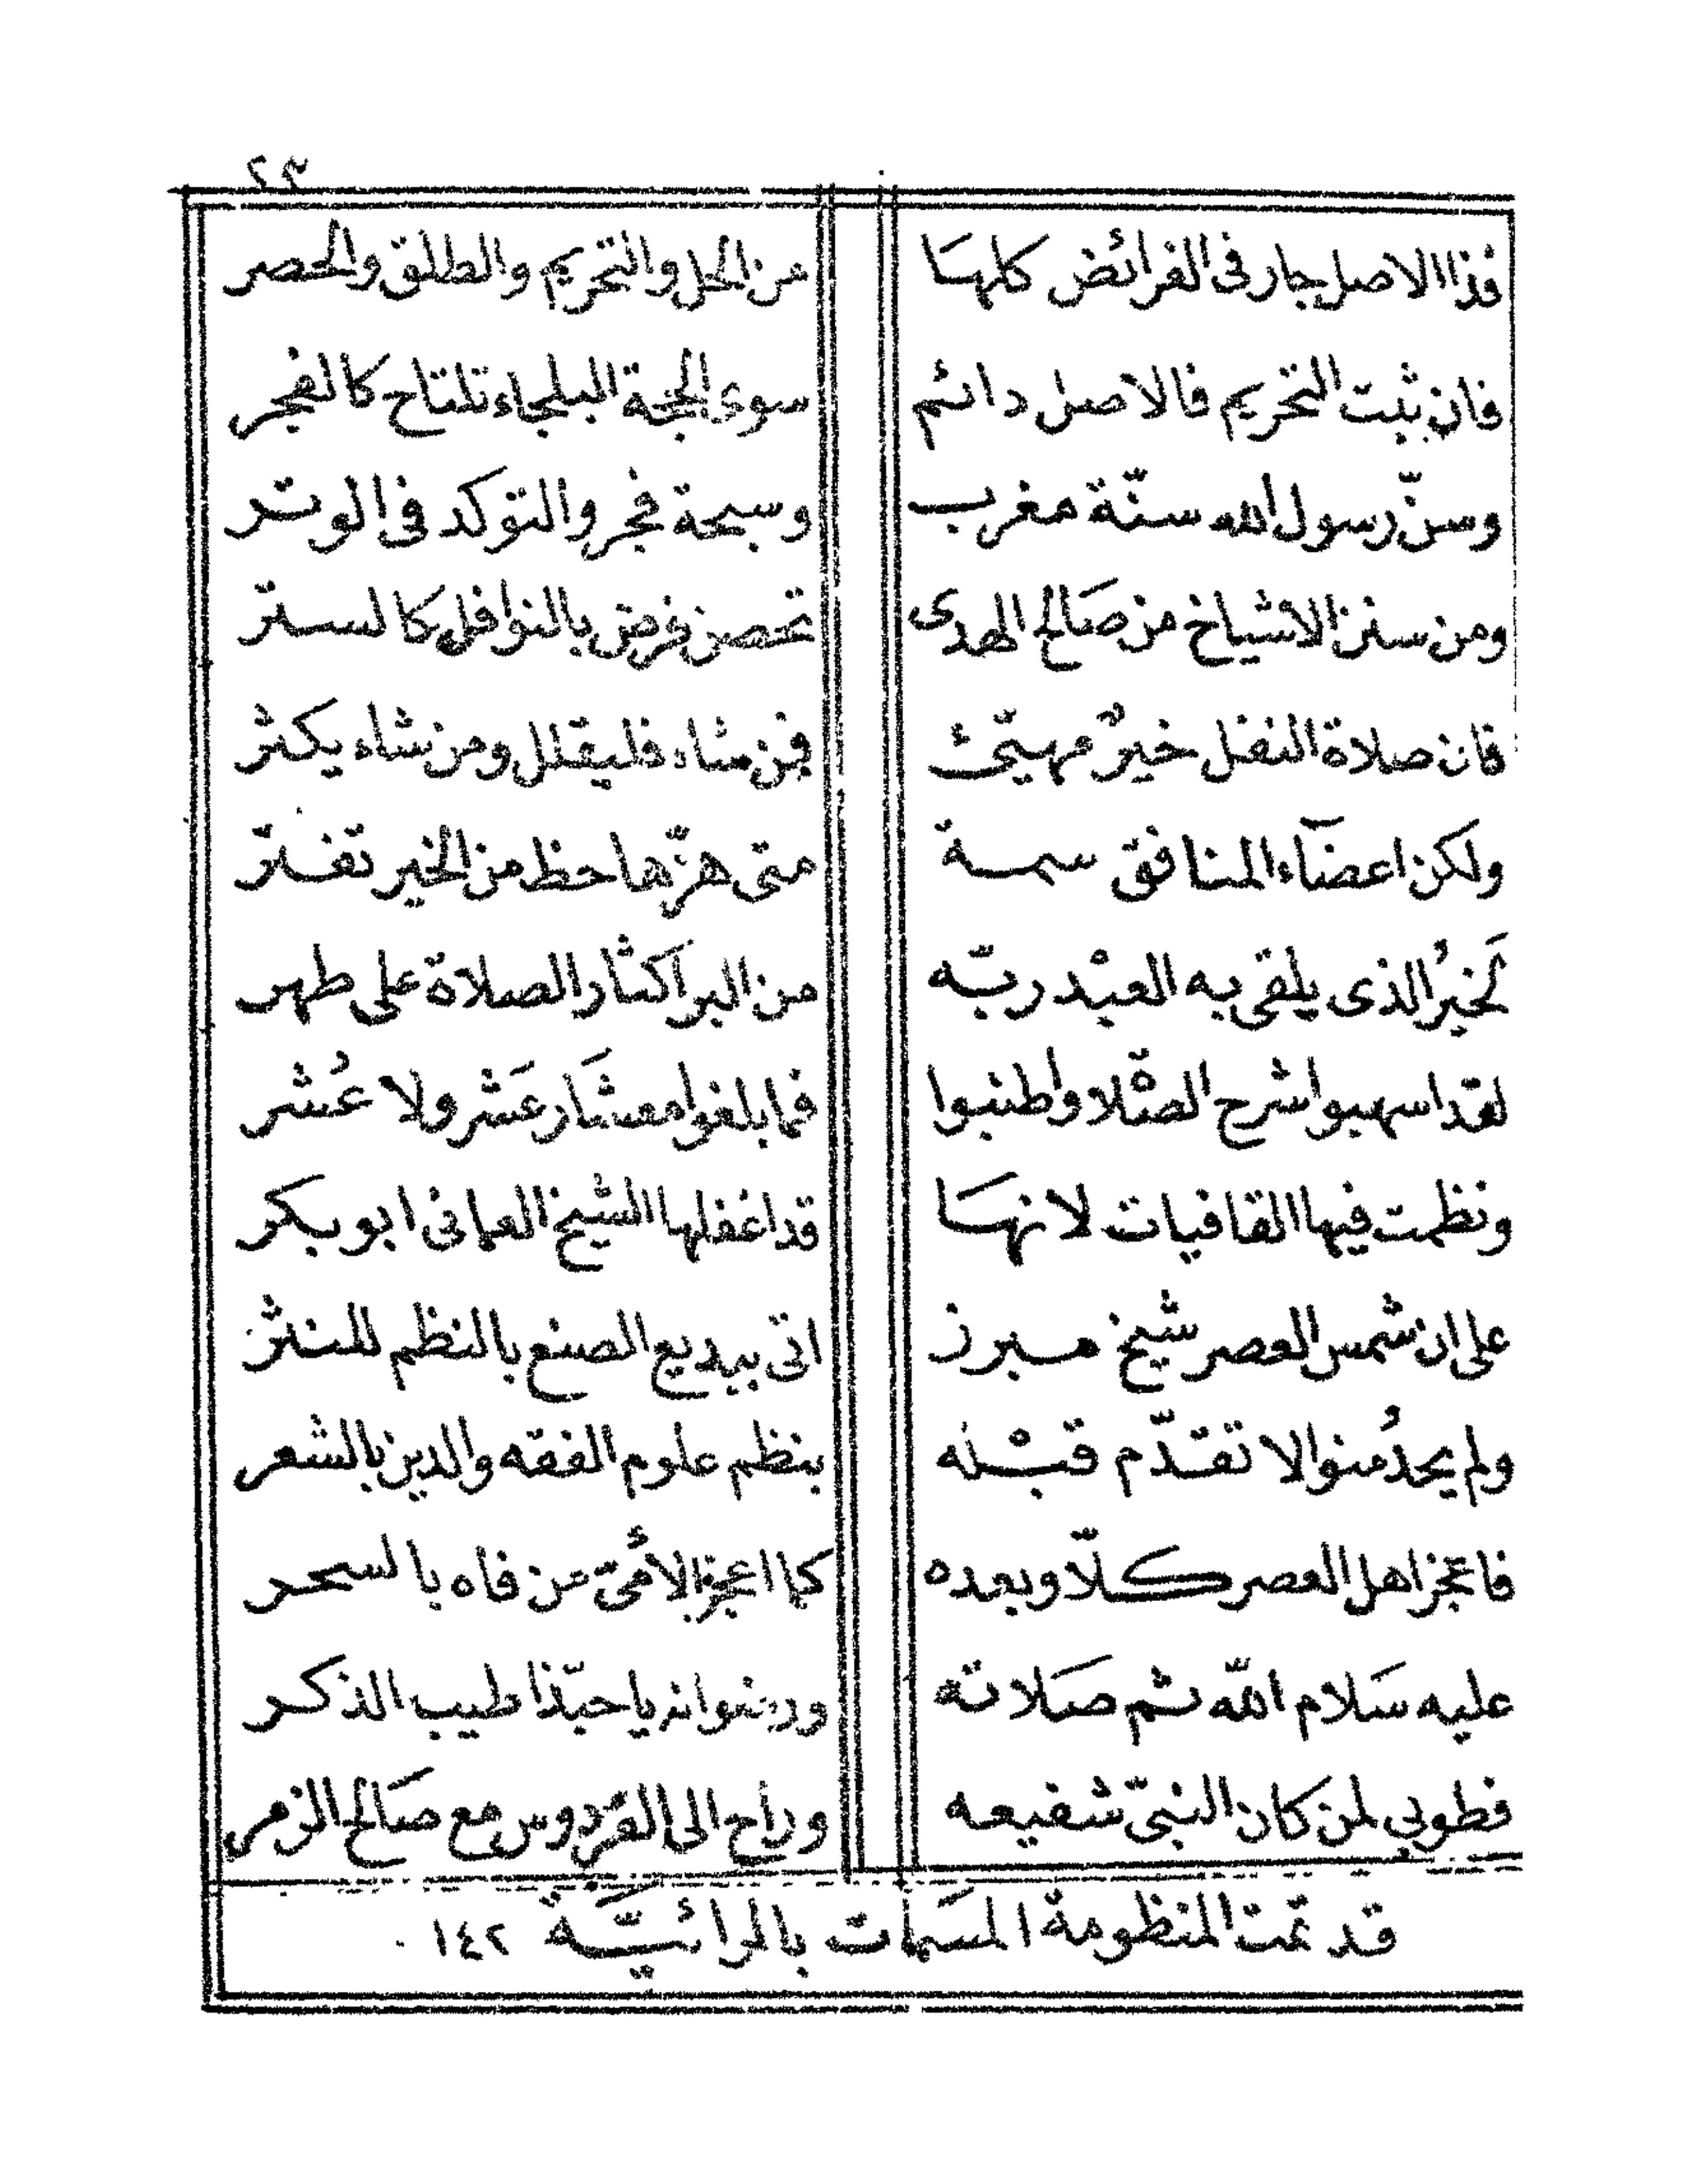 ٢٣
فذا الاصل جار فى الفرائض كلهَا عن الحل والتحريم والطلق والحصر
فان ثبت التحريم فالاصل دائم سوى الحجة البلجاء تلتاح كالفجر
وسنّ رسول الله سنّة مغرب وسبحة فجر والتوكد فى الوتر
ومن سنن الاشياخ من صَالح الهدى تحصن فرض بالنوافل كالستر
فان صلاة النفل خيرٌ مهيّئ فمن شاء فليقلل ومن شاء يكثر
ولكن اعضاء المنافق سمة متى هزّها حظ من الخير تفتر
لَخيرُ الذى يلقى به العبْد ربّه من البر اكثار الصلاة على طهر
لقد اسهبوا شرح الصّلاة واطنبوا فما بلغوا معشَار عَشر ولا عُشر
ونظمت فيها القافيات لانهَا قد اغفلها الشيخ العمانى ابو بكر
على ان شمس العصر شيخ مبرز اتى ببديع الصنع بالنظم للنثر
ولم يحذُ منوالا تقدّم قبْله بنظم علوم الفقه والدين بالشعر
فاعجز اهل العصر كلّا وبعده كما اعجز الأمىّ من فاه بالسحر
عليه سَلام الله ثم صَلاته ورضوانه يا حبّذا طيب الذكر
فطوبي لمن كان النبىّ شفيعه وراح الى الفردوس مع صَالح الزمر
قد تمت المنظومة المسَمات بالرائيّة ١٤٢